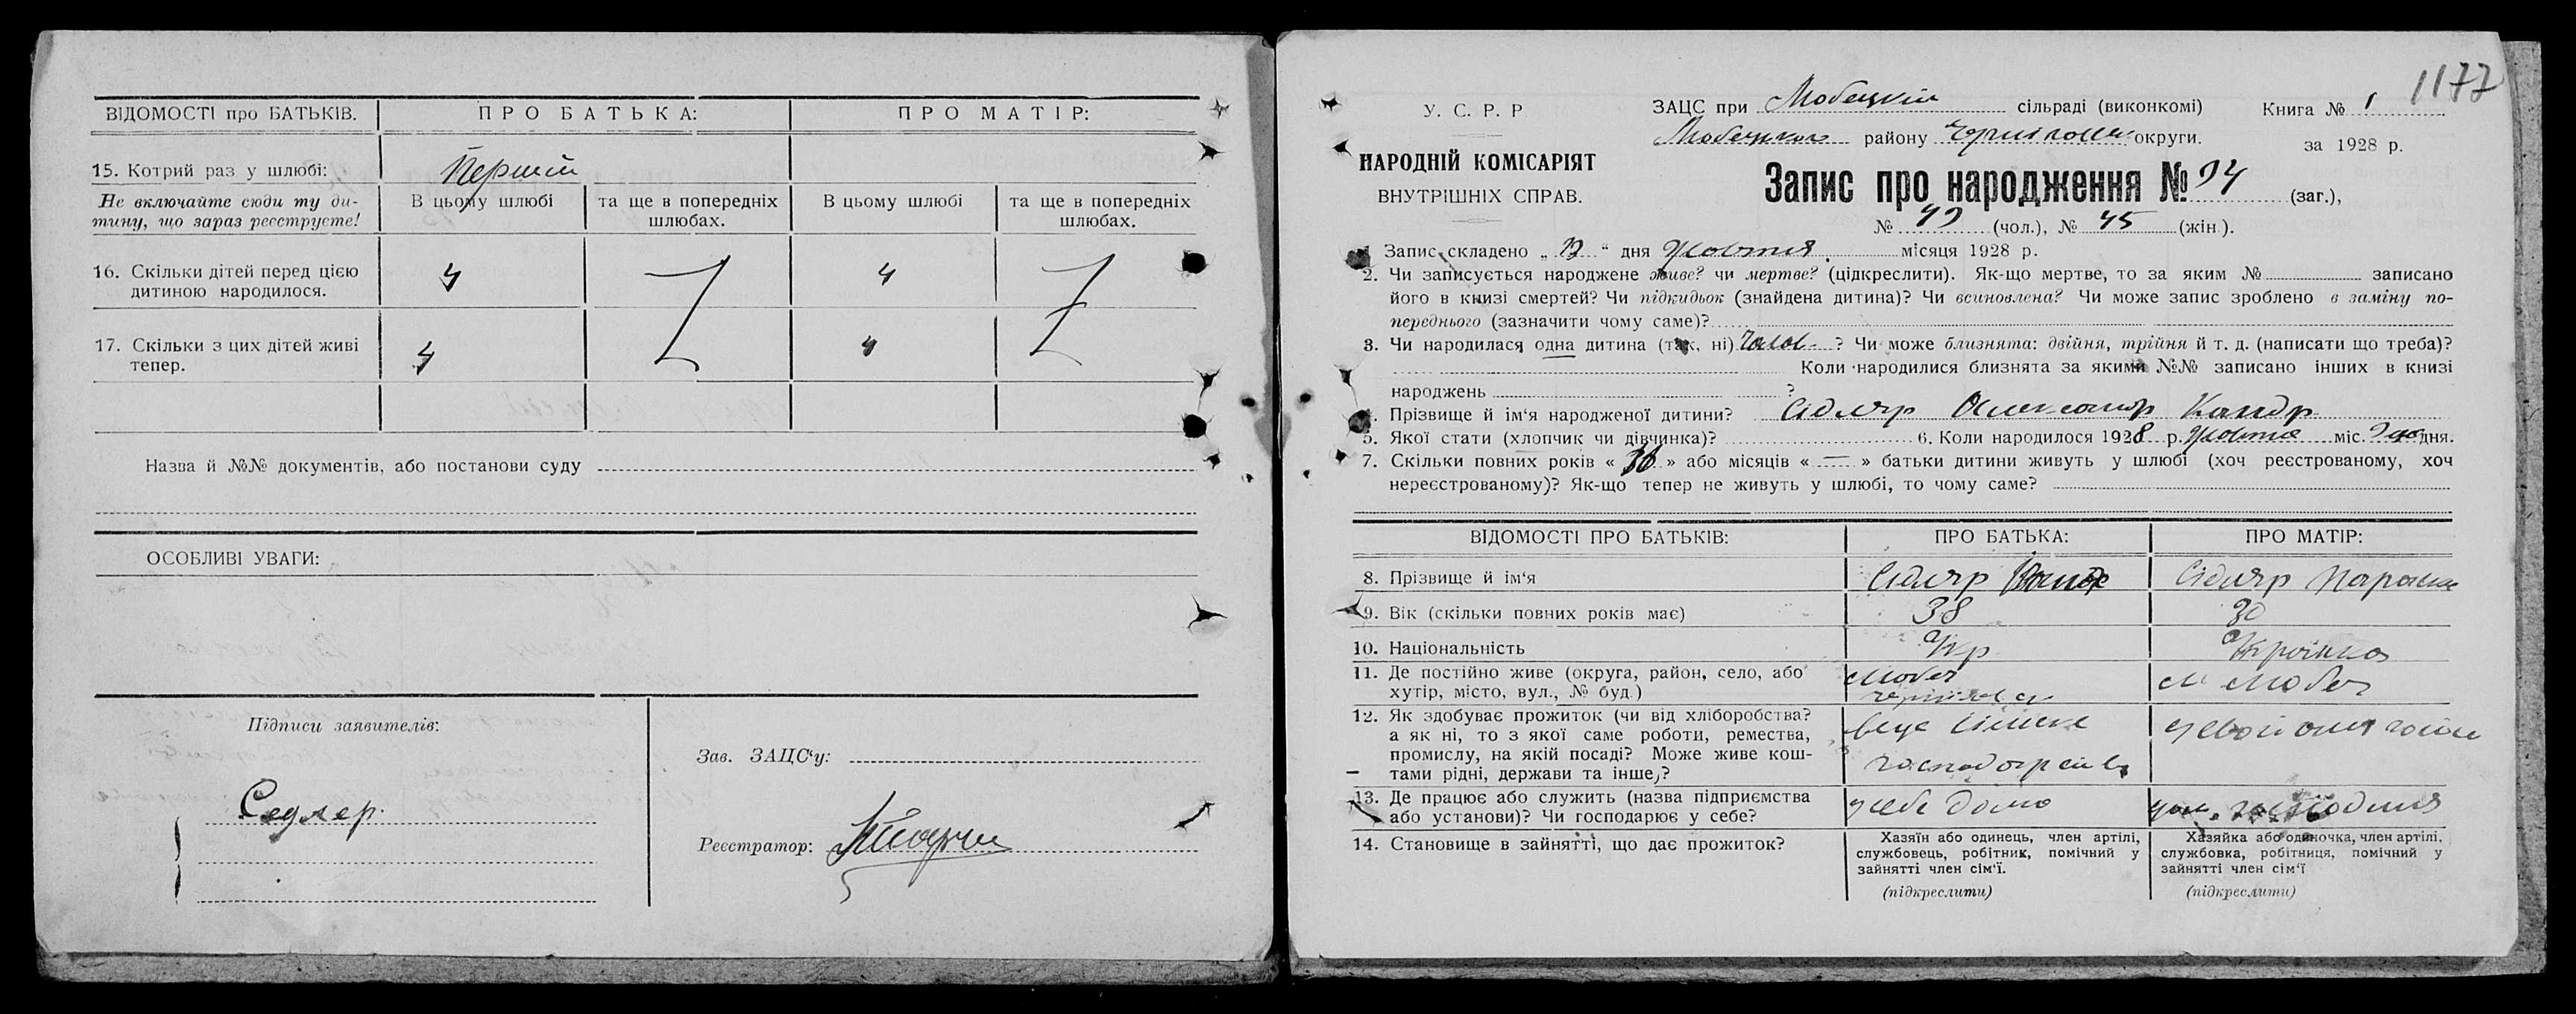 ВІДОМОСТІ про БАТЬКІВ. ПРО БАТЬКА: ПРО МАТІР:
15. Котрий раз у шлюбі: Першій
Не включайте сюди ту ди-
тину, що зараз реєструєте!
В цьому шлюбі
та ще в попередніх
шлюбах.
В цьому шлюбі
та ще в попередніх
шлюбах.
16. Скільки дітей перед цією
дитиною народилося.
4 4
17. Скільки з цих дітей живі
тепер.
4 4
Назва й №№ документів, або постанови суду
ОСОБЛИВІ УВАГИ:
Підписи заявителів:
Седлер.
Зав. ЗАЦС‘у:
Реєстратор:
1177
У. С. Р. Р
НАРОДНІЙ КОМІСАРІЯТ
ВНУТРІШНІХ СПРАВ.
ЗАЦС при сільраді (виконкомі)
району округи.
Книга № 1
за 1928 р.
Запис про народження № 94 (заг.),
№ 49 (чол.), № 45 (жін.).
1. Запис складено „ “ дня Жовтня місяця 1928 р.
2. Чи записується народжене живе? чи мертве? (підкреслити). Як-що мертве, то за яким № записано
його в книзі смертей? Чи підкидьок (знайдена дитина)? Чи всиновлена? Чи може запис зроблено в заміну по-
переднього (зазначити чому саме)?
3. Чи народилася одна дитина (так, ні) ? Чи може близнята: двійня, трійня й т. д. (написати що треба)?
Коли народилися близнята за якими №№ записано інших в книзі
народжень ?
4. Прізвище й ім‘я народженої дитини? Сідляр Олександр
5. Якої стати (хлопчик чи дівчинка)? 6. Коли народилося 1928 р. Жовтня міс. 9 дня.
7. Скільки повних років « » або місяців « — » батьки дитини живуть у шлюбі (хоч реєстрованому, хоч
нереєстрованому)? Як-що тепер не живуть у шлюбі, то чому саме?
ВІДОМОСТІ ПРО БАТЬКІВ: ПРО БАТЬКА: ПРО МАТІР:
8. Прізвище й ім‘я Сідляр Сідляр Параска
9. Вік (скільки повних років має) 38 30
10. Національність Укр Украінка
11. Де постійно живе (округа, район, село, або
хутір, місто, вул., № буд.)
12. Як здобуває прожиток (чи від хліборобства?
а як ні, то з якої саме роботи, ремества,
промислу, на якій посаді? Може живе кош-
тами рідні, держави та інше,?
13. Де працює або служить (назва підприємства
або установи)? Чи господарює у себе?
у себе дома
14. Становище в зайнятті, що дає прожиток?
Хазяїн або одинець, член артілі,
службовець, робітник, помічний у
зайнятті член сім‘ї.
(підкреслити)
Хазяйка або одиночка, член артілі,
службовка, робітниця, помічний у
зайнятті член сім‘ї
(підкреслити)